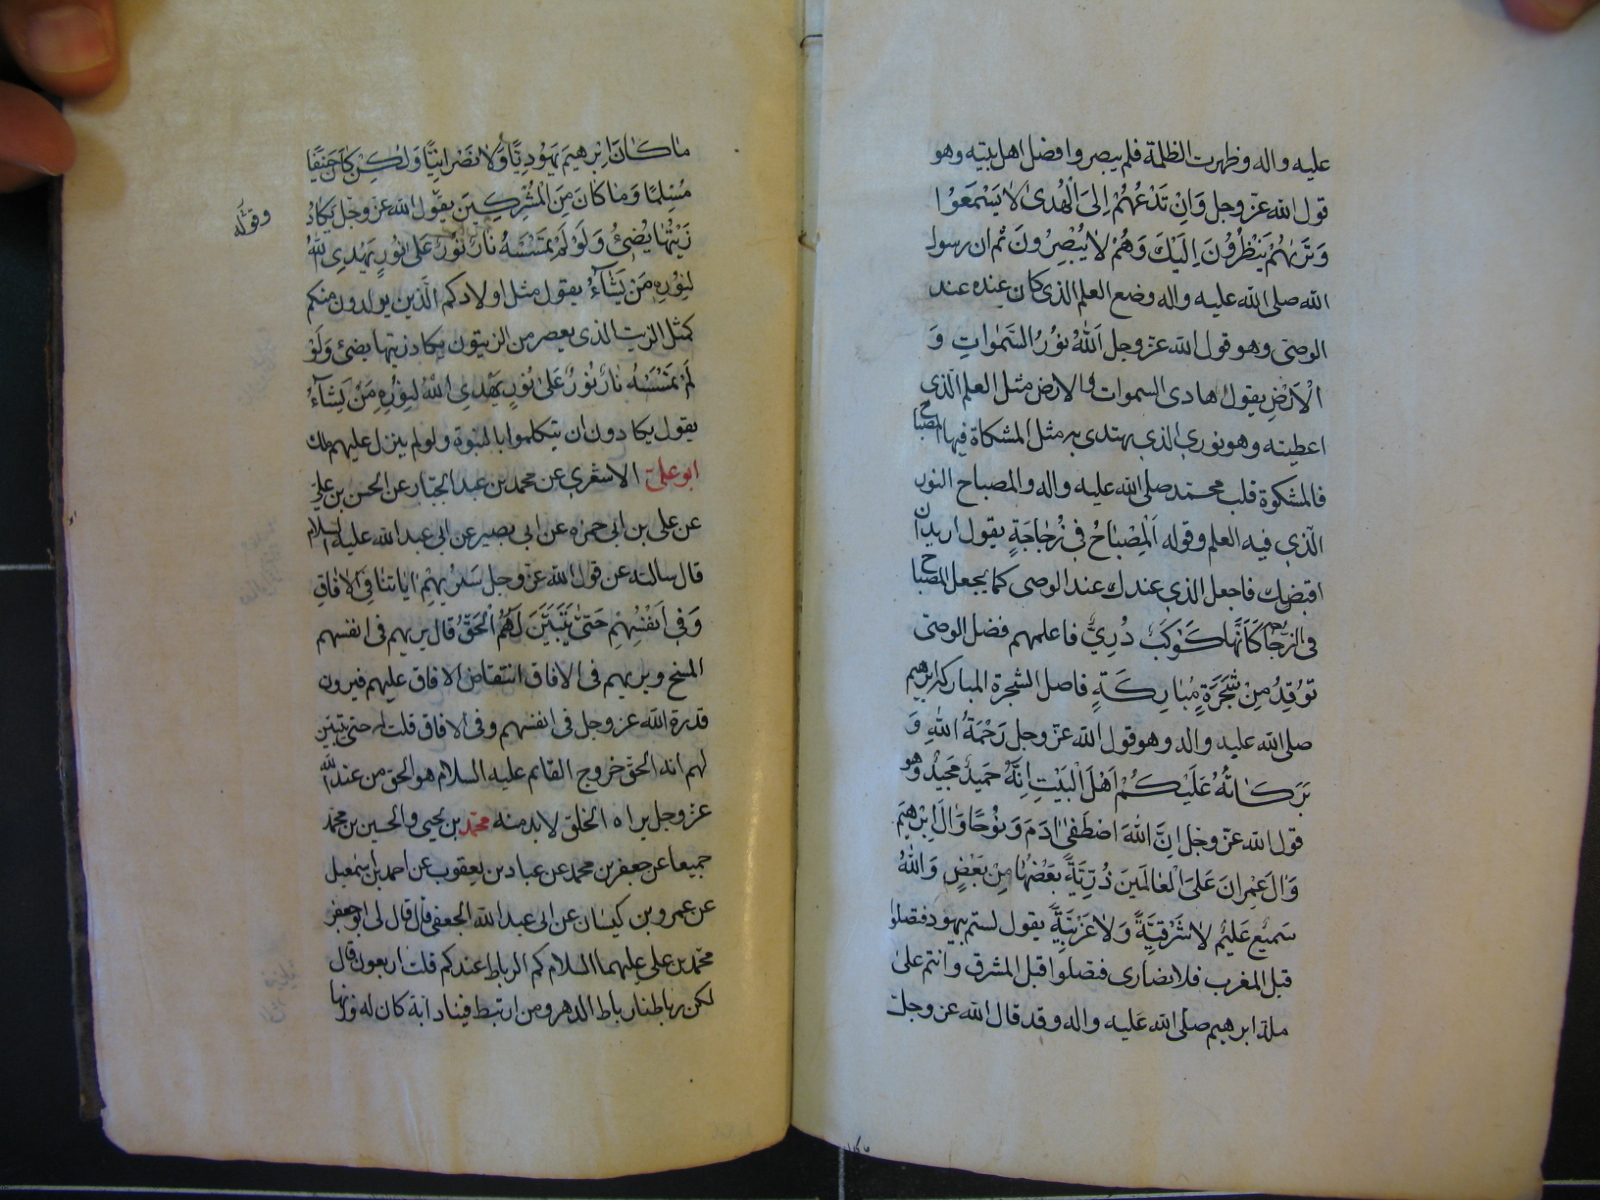 عليه واله وظهرت الظلمة فلم يبصروا فضل اهل بيته وهو
قول الله عزّ وجل وَاِنْ تَدْعُهُمْ اِلَى الْهُدىٰ لا يَسْمَعُوا
وَتَرٰيهُمْ يَنْظُرُونَ اِلَيْكَ وَهُمْ لاٰ يُبْصِرُونَ ثم ان رسول
الله صلى الله عليه واله وضع العلم الذى كان عنده عند
الوصى وهو قول الله عزّ وجل اَللّٰهُ نُورُ السَّمٰواتِ وَ
الْاَرْضِ يقول هادى السموات والارض مثل العلم الّذى
اعطيته وهو نورى الذى يهتدى به مثل المشكاة فيها المصباح
فالمشكوة قلب محمّد صلى الله عليه واله والمصباح النور
الّذى فيه العلم وقوله اَلْمِصْبٰاحُ فى زُجٰاجَةٍ يقول اريد ان
اقبضك فاجعل الذى عندك عند الوصى كما يجعل المصباح
فى الزجاجه كَاَنَّهٰا كَوْكَبٌ دُرِيٌّ فاعلمهم فضل الوصى
تُوقَدُ مِنْ شَجَرَةٍ مُبٰارِكَةٍ فاصل الشجرة المباركه ابرهيم
صلى الله عليه واله وهو قول الله عزّ وجل رَحْمَةُ اللّٰهِ وَ
بَرَكٰاتُهُ عَلَيْكُمْ اَهْلَ الْبَيْتِ اِنَّهُ حَميدٌ مَجيدٌ وهو
قول الله عزّ وجل اِنَّ اللّٰهَ اصْطَفىٰ اٰدَمَ وَنُوحًا وَاٰلَ اِبْرٰهيمَ
وَاٰلَ عِمْرانَ عَلَى الْعٰالَمينَ ذُرِّيَّةً بَعْضُهٰا مِنْ بَعْضٍ وَاللّٰهُ
سَميعٌ عَليمٌ لاٰ شَرْقِيَّةً وَلاٰ غَرْبِيَّةً يقول لستم بيهود فتصلوا
قبل المغرب فلا نصارى فتصلوا قبل المشرق وانتم على
ملة ابرهيم صلى الله عليه واله وقد قال الله عز وجل
مٰا كٰانَ اِبْرٰهيمَ يَهُودِيًّا وَلاٰ نَصْرانِيًّا وَلٰكِنْ كٰانَ حَنيفًا
مُسْلِمًا وَمٰا كٰانَ مِنَ الْمُشْرِكينَ يقول الله عزّ وجل يَكٰادُ
وقوله
زَيْتُهٰا يُضيٓئُ وَلَوْ لَمْ تَمْسَسْهُ نٰارٌ نُورٌ عَلىٰ نُورٍ يَهْدِى اللّٰهُ
لِنُورِهِ مَنْ يَشٰآءُ يقول مثل اولادكم الّذين يولدون منكم
كمثل الزيت الذى يعصر من الزيتون يكاد زيتها يضئ وَلَوْ
لَمْ تَمْسَسْهُ نٰارٌ نُورٌ عَلىٰ نُورٍ يَهْدِى اللّٰهُ لِنُورِهِ مَنْ يَشٰآءُ
يقول يكادون ان يتكلموا بالنبوة ولو لم ينزل عليهم ملك
ابو على الاشعرى عن محمد بن عبد الجبّار عن الحسن بن على
عن على بن ابى حمزه عن ابى بصير عن ابى عبد الله عليه السلام
قال سالته عن قول الله عزّ وجل سَنُريهِمْ اٰيٰاتِنٰا فِى الْاٰفٰاقِ
وَفى اَنْفُسِهِمْ حَتىّٰ يَتَبَيَّنَ لَهُمْ اَنَّهُ الْحَقُّ قال يريهم فى انفسهم
المسخ ويريهم فى الافاق انتقاض الافاق عليهم فيرون
قدرة الله عز وجل فى انفسهم وفى الافاق قلت له حتى يتبيّن
لهم انه الحق خروج القائم عليه السلام هو الحق من عند الله
عزّ وجل يراه الخلق لا بد منه محمّد بن يحيى والحسين بن محمّد
جميعا عن جعفر بن محمد عن عباد بن يعقوب عن احمد بن اسمعيل
عن عمرو بن كيسان عن ابى عبد الله الجعفى قال قال لى ابو جعفر
محمّد بن على عليهما السلام كم الرباط عندكم قلت اربعون قال
لكن رباطنا رباط الدهر ومن ارتبط فينا دابة كان له وزنها